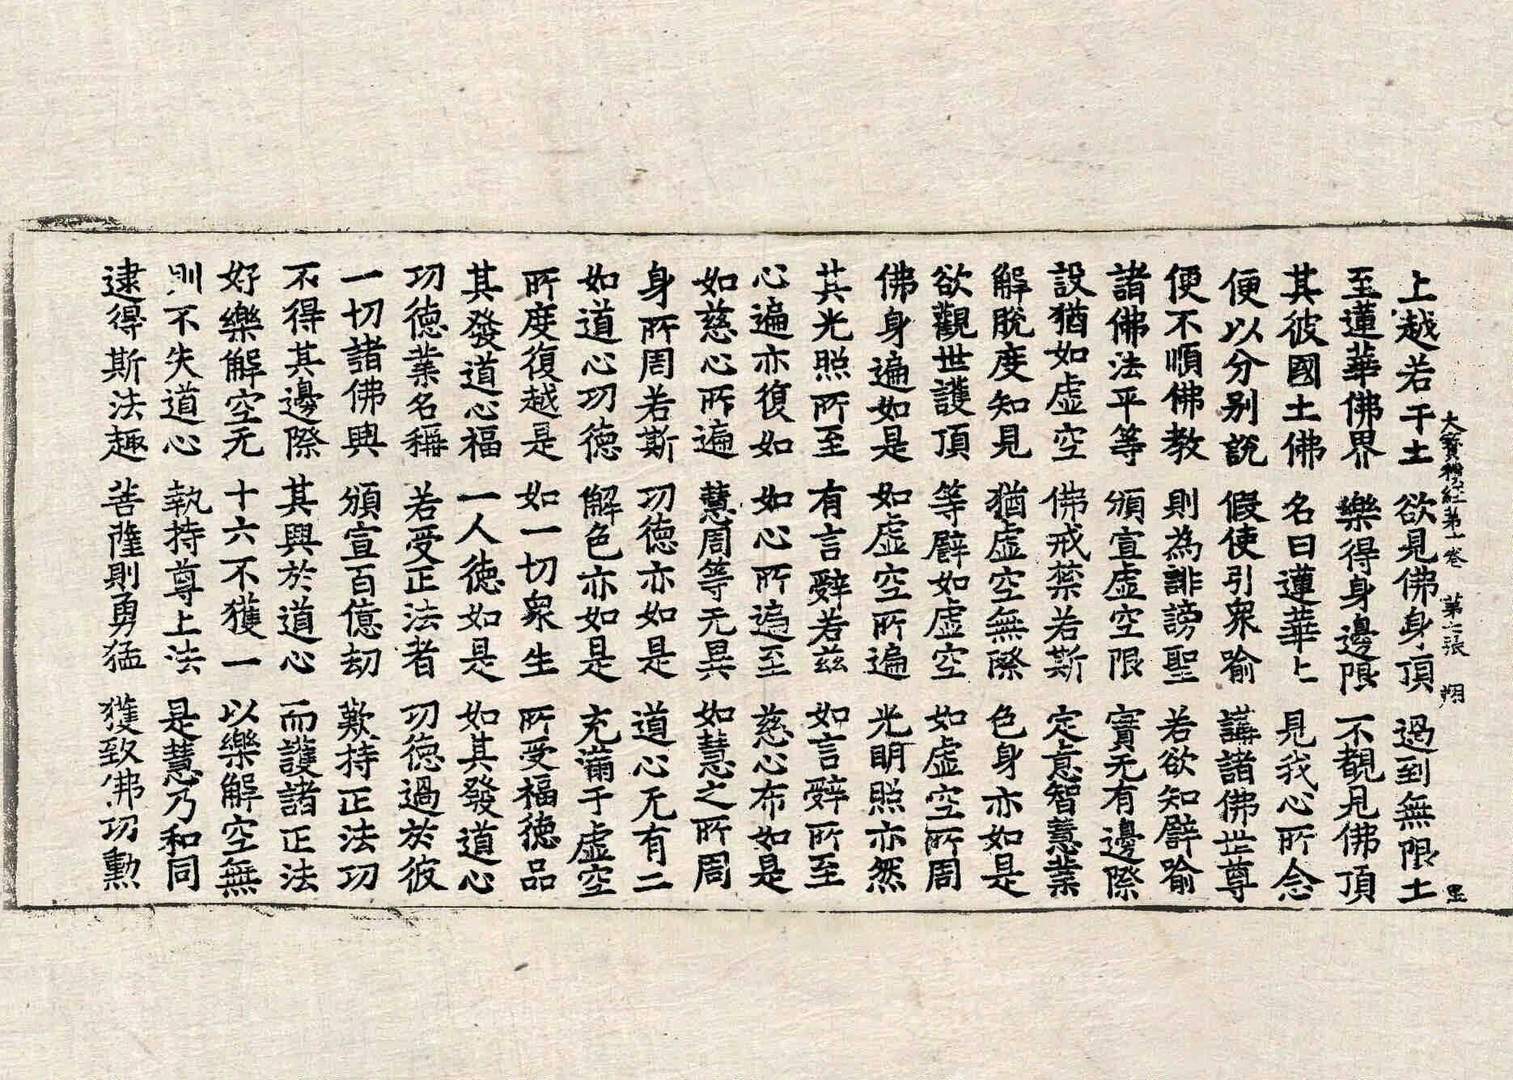 大寶積經第十卷　第七張　翔
上越若干土　欲見佛身頂　過到無限土
至蓮華佛界　樂得身邊限　不覩見佛頂
其彼國土佛　名曰蓮華上　見我心所念
便以分别說　假使引衆喻　講諸佛世尊
便不順佛教　則為誹謗聖　若欲知譬喻
諸佛法平等　頒宣虛空限　實无有邊際
設猶如虛空　佛戒禁若斯　定意智慧業
解脫度知見　猶虛空無際　色身亦如是
欲觀世護頂　等譬如虛空　如虛空所周
佛身遍如是　如虛空所遍　光明照亦然
其光照所至　有言辭若茲　如言辭所至
心遍亦復如　如心所遍至　慈心布如是
如慈心所遍　慧周等无異　如慧之所周
身所周若斯　功德亦如是　道心无有二
如道心功德　解色亦如是　充滿于虛空
所度復越是　如一切衆生　所受福德品
其發道心福　一人德如是　如其發道心
功德業名稱　若受正法者　功德過於彼
一切諸佛興　頒宣百億劫　歎持正法功
不得其邊際　其興於道心　而護諸正法
好樂解空无　十六不獲一　以樂解空無
則不失道心　執持尊上法　是慧乃和同
逮得斯法趣　菩薩則勇猛　獲致佛功勳